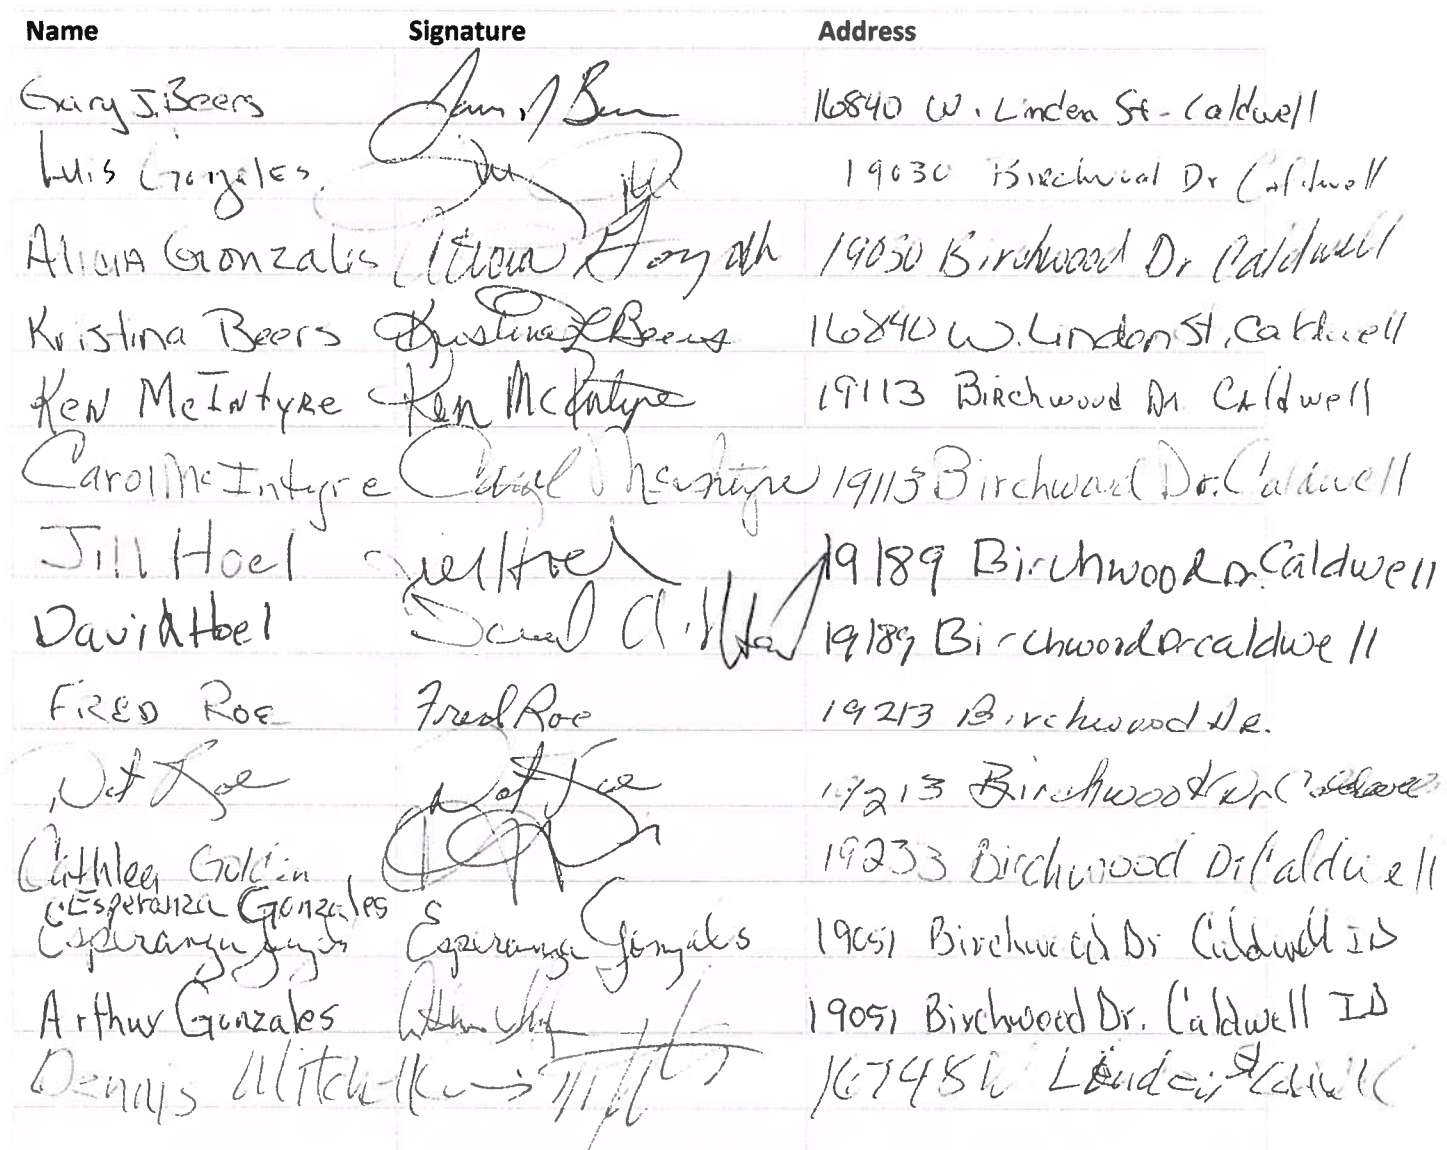 Name Signature Address
Gary J. Beers 16840 W. Linden St - Caldwell
Luis Gonzales 19030 Birchwood Dr Caldwell
Alicia Gonzales 19030 Birchwood Dr Caldwell
Kristina Beers Kristina L Beers 16840 W. Linden St, Caldwell
Ken McIntyre Ken McIntyre 19113 Birchwood Dr Caldwell
Carol McIntyre Carol McIntyre 19113 Birchwood Dr. Caldwell
Jill Hoel Jill Hoel 19189 Birchwood Dr. Caldwell
David Hoel David Hoel 19189 Birchwood Dr caldwell
FRED ROE Fred Roe 19213 Birchwood Dr.
Nat Roe Nat Roe 19213 Birchwood Dr Caldwell
Cathleen 19233 Birchwood Dr Caldwell
Esperanza Gonzales
Esperanza Esperanza Gonzales 19051 Birchwood Dr Caldwell ID
Arthur Gonzales 19051 Birchwood Dr. Caldwell ID
Dennis Mitchell Linden St Caldwell